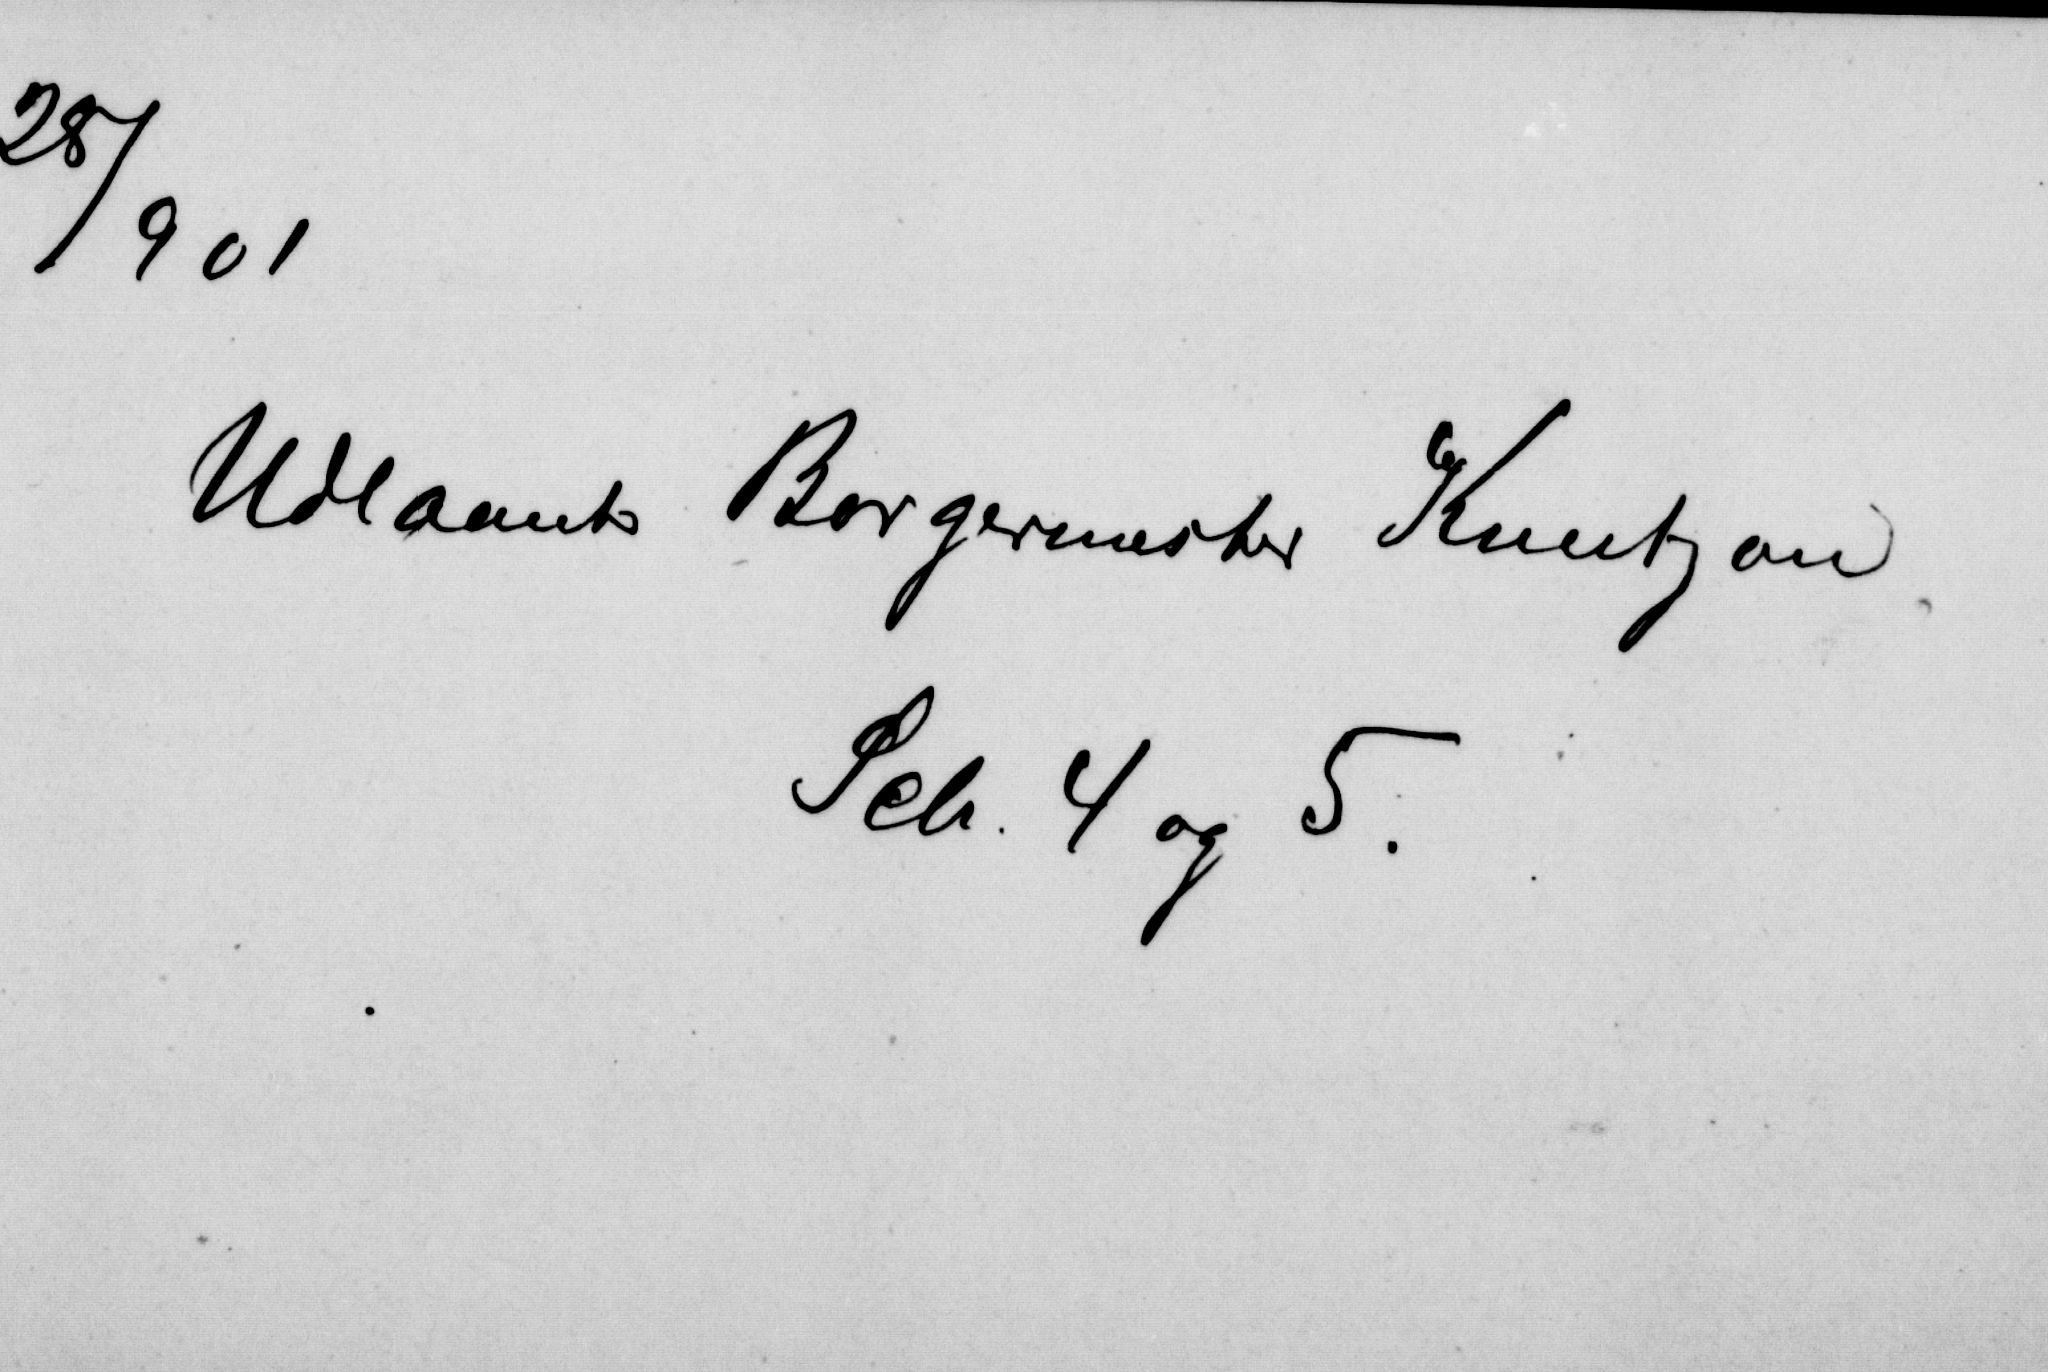 28/901
Udlaant Borgermester Knutzon
Sch. 4 og 5.